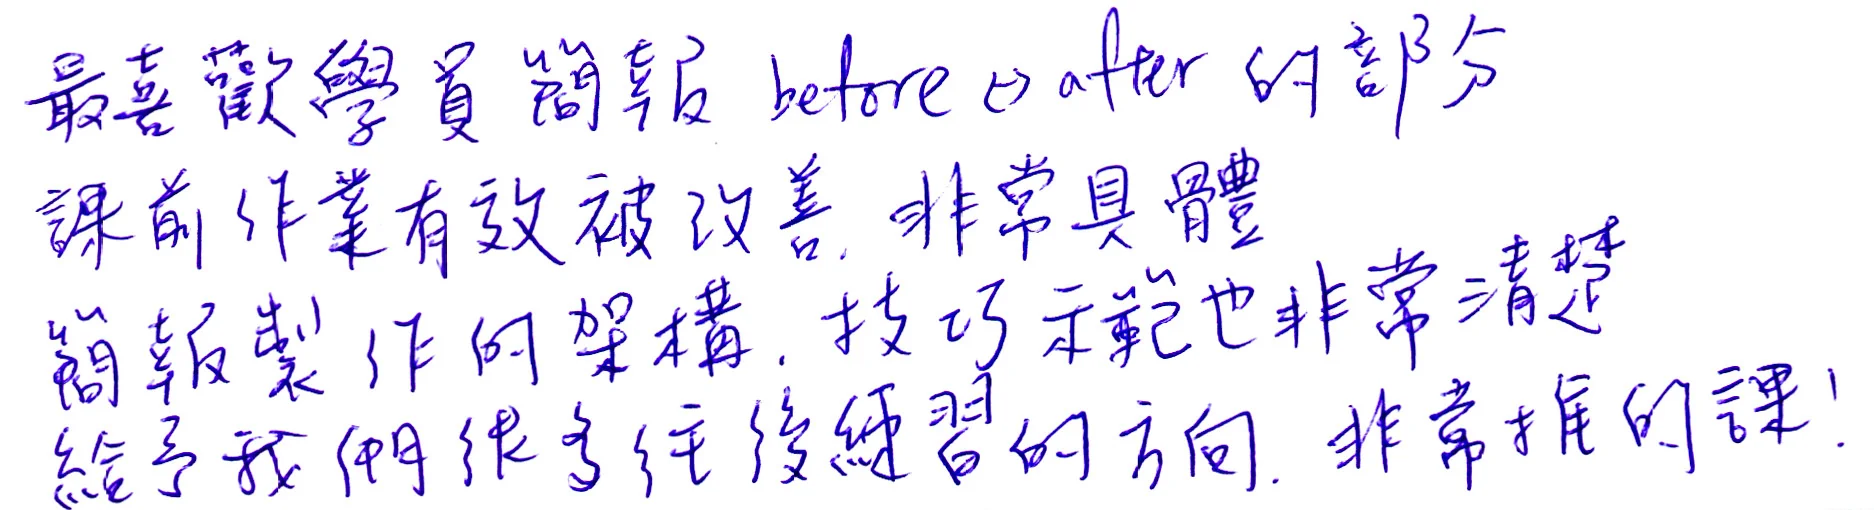 最喜歡學員簡報 before ↔ after 的部分
課前作業有效被改善. 非常具體
簡報製作的架構. 技巧示範也非常清楚
給予我們很多往後練習的方向. 非常推的課!